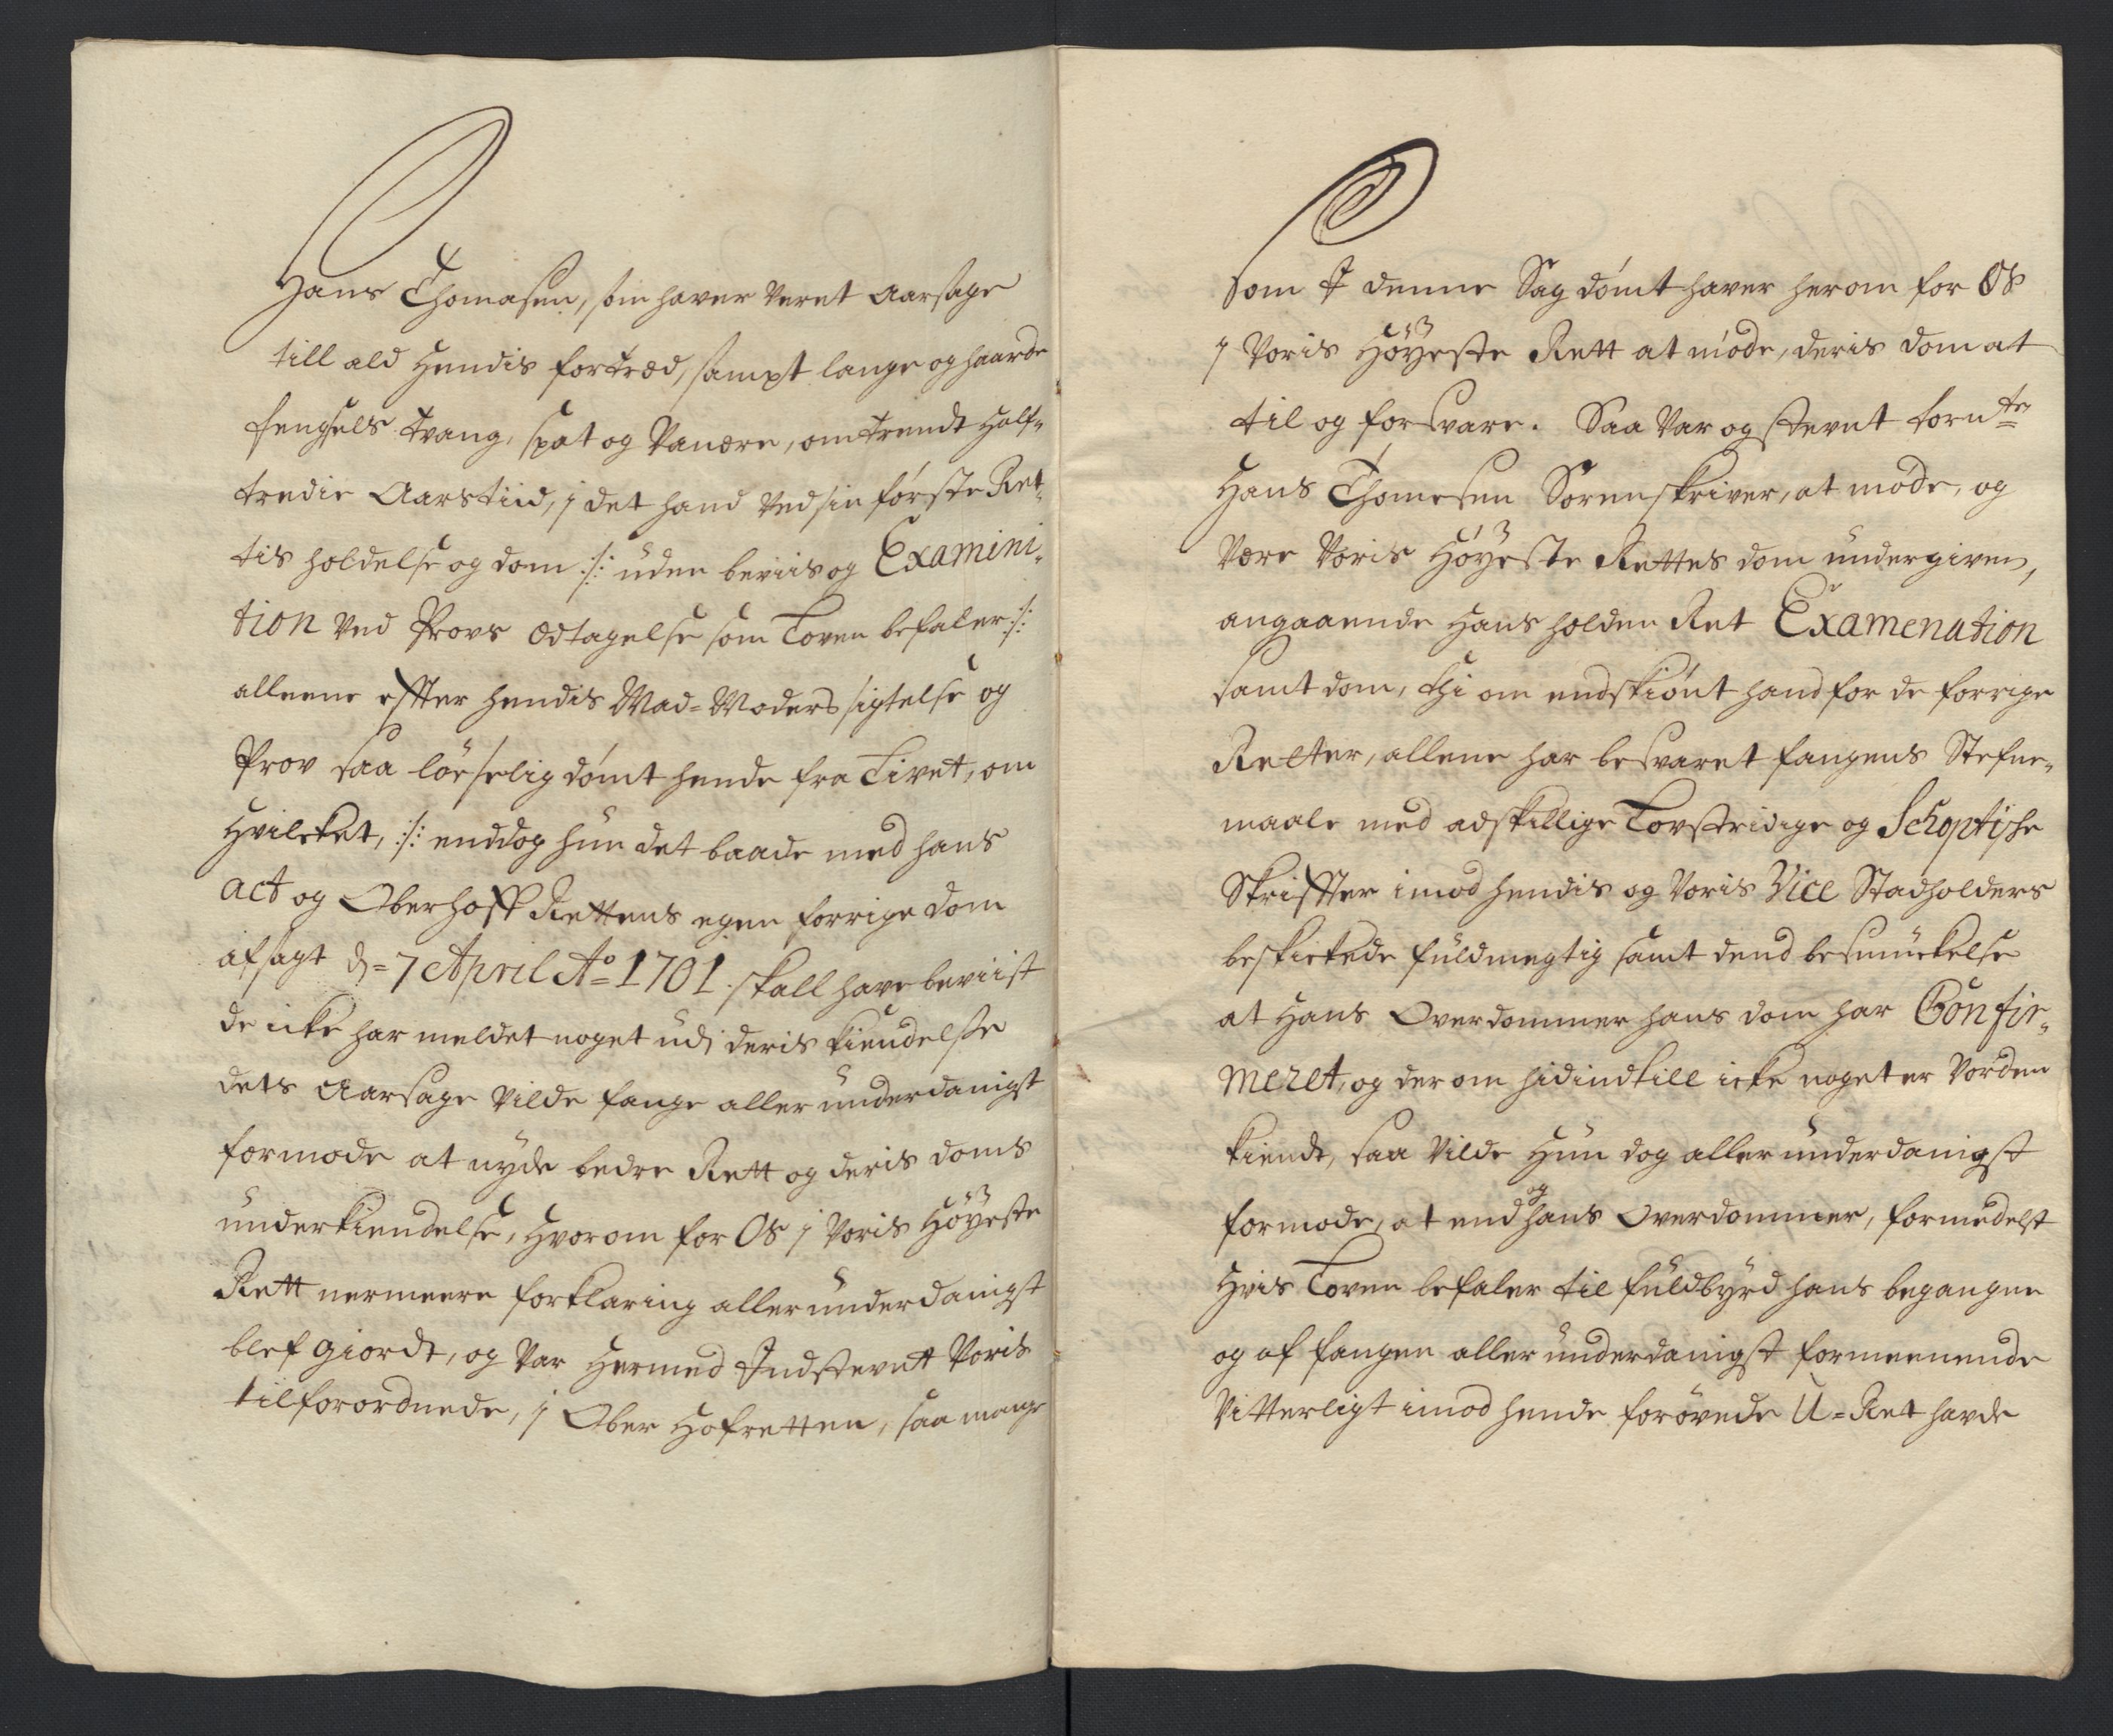 Hans Thomasen, som haver veret Aarsage
till ald hendis fortræd, sampt lange og haarde
fengsels tvang, spot og Vanære, omtrendt half-
tredie Aarstiid, i det hand ved sin første Ret-
tis holdelse og dom ./. uden beviis og Examini-
tion ved Provs Edtagelse som Loven befaler ./.
alleene effter hendis Mad-Moders sigtelse og
Prov saa løeselig dømt hende fra Livet, om
hvilcket, ./. enddog hun det baade med hans
act og Oberhoff Rettens egen forrige dom
afsagt d. 7 April Ao 1701 skall have beviist
de icke har meldet noget udi deris kiendelse
dets Aarsage vilde fange allerunderdanigst
formode at nyde bedre Rett og deris doms
underkiendelse, hvorom for Os i Voris Höyeste
Rett nermeere forklaring allerunderdanigst
blef giordt, og Var hermed Indstevnt Voris
tilforordnede, i Ober hofretten, saa mange
som I denne Sag dømt haver herom for Os
i Voris Höyeste Rett at møde, deris dom at
til og forsvare. Saa Var og stevnt bem:te
Hans Thomesen Sorenskriver, at møde, og
være Voris Höyeste Rettes dom undergiven,
angaaende hans holden Ret Examenation
samt dom, thi om endskiönt hand for de forrige
Retter, allene har besvaret fangens Stefne-
maale med adskillige Lovstridige og Schoptishe
Skriffter imod hendis og Voris Vice Stadholders
beskickede fuldmegtig samt dend besmückelse
at hans Overdommer hans dom har Confir-
meret, og derom hidindtill icke noget er vorden
kiendt, saa vilde hun dog allerunderdanigst
formode, at end og hans Overdommer, formedelst
hvis Loven befaler til fuldbyrd hans begangne
og af fangen allerunderdanigst formeenende
Vitterligt imod hende forøvede U-Ret havde